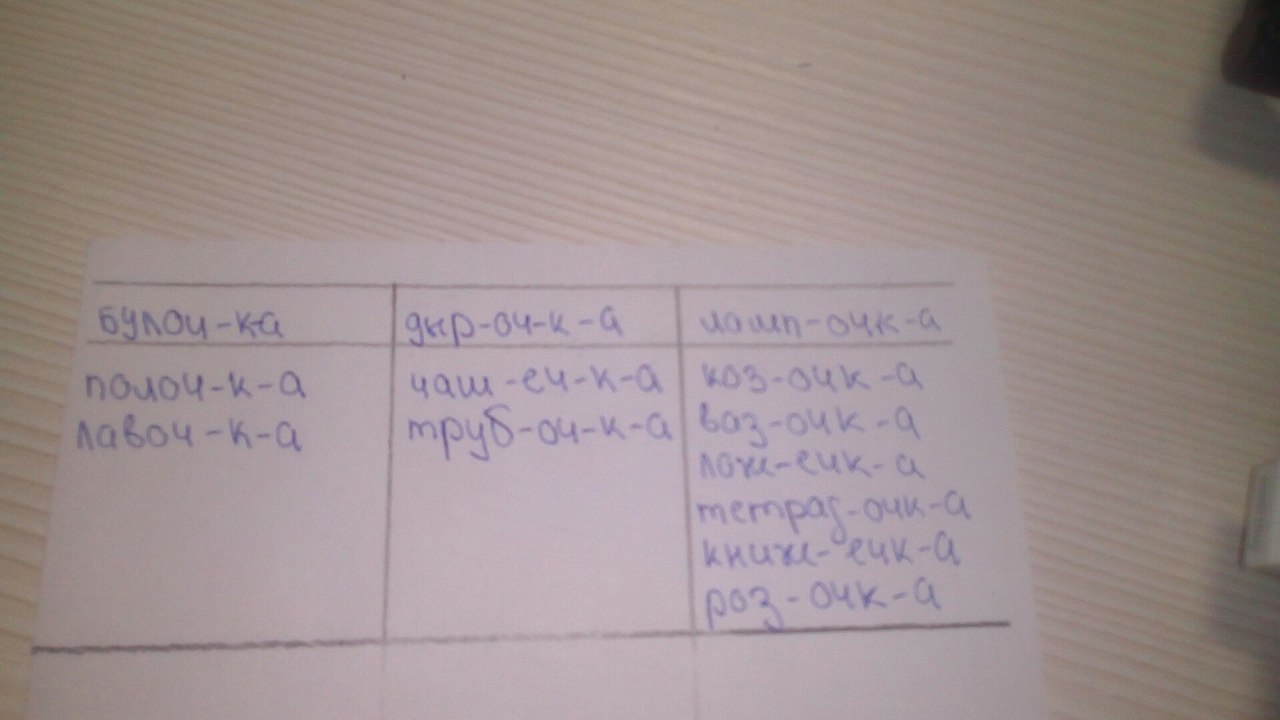 булоч-ка
дыр-оч-к-а
ламп-очк-а
полоч-к-а
лавоч-к-а
чаш-еч-к-а
труб-оч-к-а
коз-очк-а
ваз-очк-а
лож-ечк-а
тетрад-очк-а
книж-ечк-а
роз-очк-а